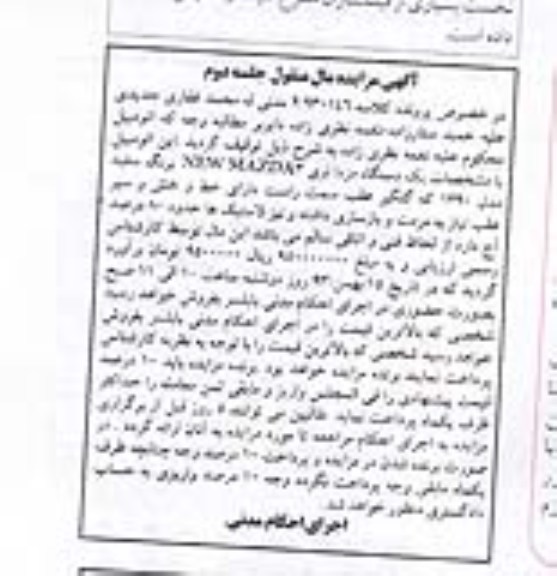 داده است.
آگهی مزایده مال منقول جلسه دوم
در خصوص پرونده کلاسه مدنی له محمد غفاری حدیدی
علیه حمید نعمه نظری زاده دایر بر مطالبه وجه که اتومبیل
محکوم علیه نعمه نظری زاده به شرح ذیل توقیف گردید این اتومبیل
با مشخصات یک دستگاه مزدا تری NEW MAZDA3 برنگ سفید
مدل ۱۳۹۰ که گلگیر عقب سمت راست دارای خط و خش و سپر
عقب نیاز به مرمت و بازسازی داشته و نیز لاستیک ها حدود ۹۰ درصد
آج دارد از لحاظ فنی و اتاقی سالم می باشد این مال توسط کارشناس
رسمی ارزیابی و به مبلغ ریال تومان برآورد
گردید که در تاریخ ۱۵ بهمن ۹۳ روز ساعت ۱۰ الی ۱۱ صبح
بصورت حضوری در اجرای احکام مدنی بابلسر بفروش خواهد رسید
شخصی که بالاترین قیمت را در اجرای احکام مدنی بابلسر بفروش
خواهد رسید شخصی که بالاترین قیمت را با توجه به نظریه کارشناس
پرداخت نمایند برنده مزایده خواهد بود برنده مزایده باید ۱۰ درصد
قیمت پیشنهادی را فی المجلس واریز و مابقی ثمن معامله را حداکثر
ظرف یکماه پرداخت نماید طالبین می توانند ۵ روز قبل از برگزاری
مزایده به اجرای احکام مراجعه تا مورد مزایده به آنان ارائه گردد . در
صورت برنده شدن در مزایده و پرداخت ۱۰ درصد وجه چنانچه ظرف
یکماه مابقی وجه پرداخت نگردد وجه ۱۰ درصد واریزی به حساب
دادگستری منظور خواهد شد.
اجرای احکام مدنی